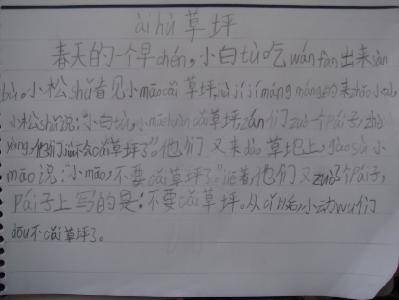 ài hù 草坪
春天的一个早chén，小白tù吃wán fàn出来sàn
bù。小松shǔ看见小māo cǎi草坪 jí jí máng máng的来zhǎo小
小松shǔ说：小白tù，小māo cǎi草坪zán们zuò一个pái子，zhè
yàng，他们 不会cǎi草坪了。"他们又来dào草地上，gào sù小
māo说：小māo，不要cǎi草坪了。"说着，他们又zuò了个pái子，
pái子上写的是：不要cǎi草坪。从cǐ以后，小动wù们
dōu不cǎi草坪了。